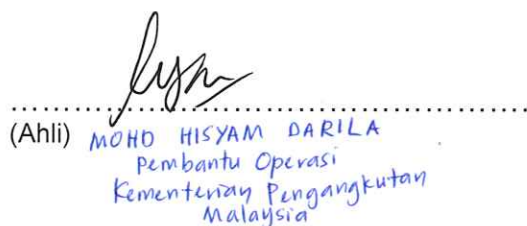 (Ahli) MOHD HISYAM DARILA
Pembantu Operasi
Kementerian Pengangkutan
Malaysia